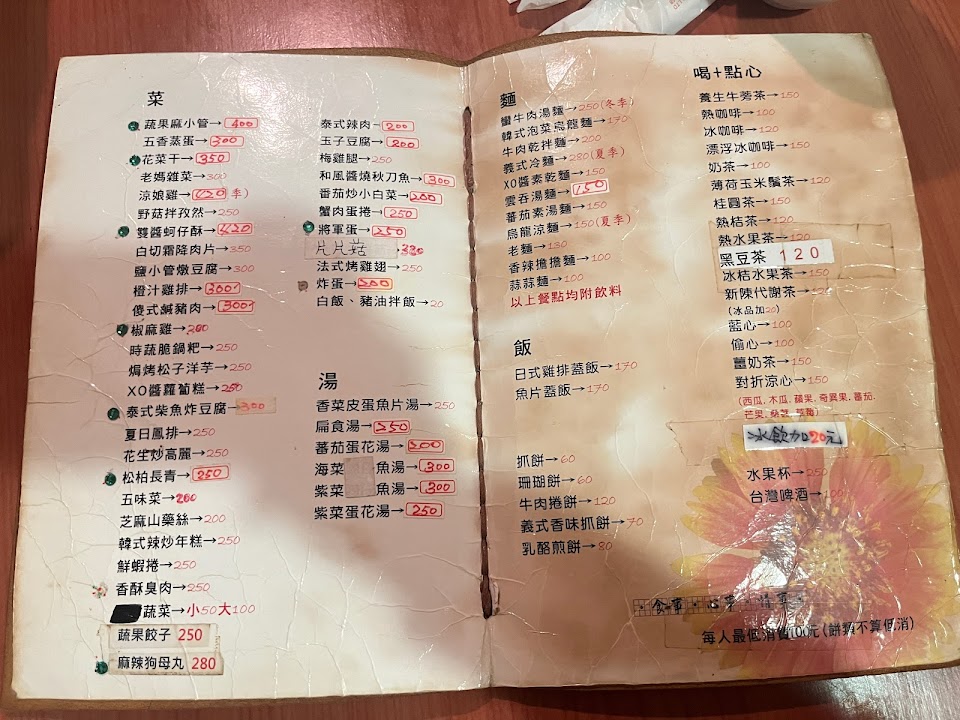 菜
蔬果麻小管→400
五香蒸蛋→300
花菜干→350
老媽雜菜→300
涼娘雞→420季)
野菇拌孜然→250
雙醬蚵仔酥→420
白切霜降肉片→350
鹽小管燉豆腐→300
橙汁雞排→300
傻式鹹豬肉→300
椒麻雞→280
時蔬脆鍋粑→250
焗烤松子洋芋→250
XO醬蘿蔔糕→250
泰式柴魚炸豆腐→300
夏日鳳排→250
花生炒高麗→250
松柏長青→250
五味菜→200
芝麻山藥絲→200
韓式辣炒年糕→250
鮮蝦捲→250
香酥臭肉→250
蔬菜→小50大100
蔬果餃子 250
麻辣狗母丸 280
泰式辣肉→200
玉子豆腐→200
梅雞腿→250
和風醬燒秋刀魚→300
番茄炒小白菜→200
蟹肉蛋捲→250
將軍蛋→250
片片菇→320
法式烤雞翅→250
炸蛋→200
白飯、豬油拌飯→20
湯
香菜皮蛋魚片湯→250
扁食湯→250
蕃茄蛋花湯→200
海菜 魚湯→300
紫菜 魚湯→300
紫菜蛋花湯→250
麵
蠻牛肉湯麵→250(冬季)
韓式泡菜烏龍麵→170
牛肉乾拌麵→200
義式冷麵→280(夏季)
XO醬素乾麵→150
雲吞湯麵→150
蕃茄素湯麵→150
烏龍涼麵→150(夏季)
老麵→130
香辣擔擔麵→100
蒜蒜麵→100
以上餐點均附飲料
飯
日式雞排蓋飯→170
魚片蓋飯→170
抓餅→60
珊瑚餅→60
牛肉捲餅→120
義式香味抓餅→70
乳酪煎餅→80
喝+點心
養生牛蒡茶→150
熱咖啡→100
冰咖啡→120
漂浮冰咖啡→150
奶茶→100
薄荷玉米鬚茶→120
桂圓茶→150
熱桔茶→120
熱水果茶→120
黑豆茶 120
冰桔水果茶→150
新陳代謝茶→120
(冰品加20)
藍心→100
偷心→100
薑奶茶→150
對折涼心→150
(西瓜.木瓜.蘋果.奇異果.蕃茄.
芒果.
冰飲加20元
水果杯→250
台灣啤酒→100
食事・心事・情事
每人最低消費100元(餅類不算低消)